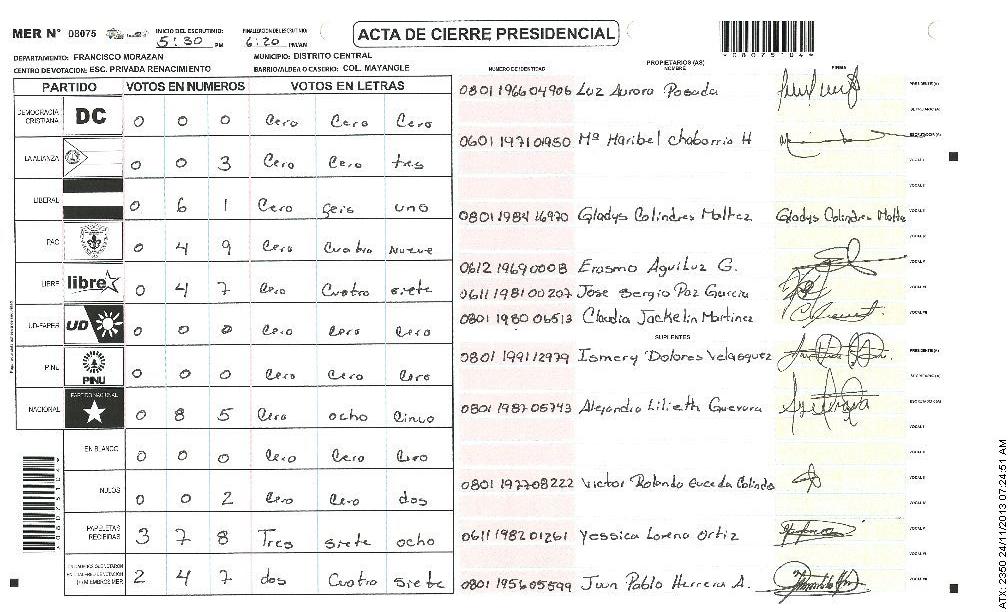 MER N° 08075
INICIO DEL ESCRUTINIO:
5:30 PM
FINALIZACION DE ESCRUTINIO:
6:20 PM/AM
ACTA DE CIERRE PRESIDENCIAL
DEPARTAMENTO: FRANCISCO MORAZAN
MUNICIPIO: DISTRITO CENTRAL
CENTRO DE VOTACION: ESC. PRIVADA RENACIMIENTO
BARRIO/ALDEA O CASERIO: COL. MAYANGLE
PARTIDO VOTOS EN NUMEROS VOTOS EN LETRAS
DEMOCRACIA CRISTIANA DC 0 0 0 Cero Cero Cero
LA ALIANZA 0 0 3 Cero Cero tres
LIBERAL 0 6 1 Cero seis uno
PAC 0 4 9 Cero Cuatro Nueve
LIBRE libre 0 4 7 Cero Cuatro siete
UD-FAPER UD 0 0 0 Cero Cero Cero
PINU PINU 0 0 0 Cero Cero Cero
NACIONAL PARTIDO NACIONAL 0 8 5 Cero ocho Cinco
EN BLANCO 0 0 0 Cero Cero Cero
NULOS 0 0 2 Cero Cero dos
PAPELETAS RECIBIDAS 3 7 8 Tres siete ocho
2 4 7 dos Cuatro siete
NUMERO DE IDENTIDAD
PROPIETARIOS (AS)
NOMBRE
FIRMA
0801 1966 04906 Luz Aurora Posada
PRESIDENTE(A)
SECRETARIO(A)
0601 1971 01950 Mª Maribel Chabarria H
ESCRUTADOR(A)
VOCAL I
VOCAL II
0801 1984 16970 Gladys Colindres Maltez Gladys Colindres Malte
0612 1969 0008 Erasmo Aguiluz G.
0611 1981 00207 Jose Sergio Paz Garcia
0801 1980 06513 Claudia Jackelin Martinez
SUPLENTES
0801 1991 12979 Ismery Dolores Velasquez
PRESIDENTE(A)
SECRETARIO(A)
0801 1987 05743 Alejandra Lilieth Guevara
ESCRUTADOR(A)
0801 1977 08222 Victor Rolando Euceda Colindres
0611 1982 01261 Yessica Lorena Ortiz
0801 1956 05599 Juan Pablo Herrera A.
ATX-2350 24/11/2013 07:24:51 AM